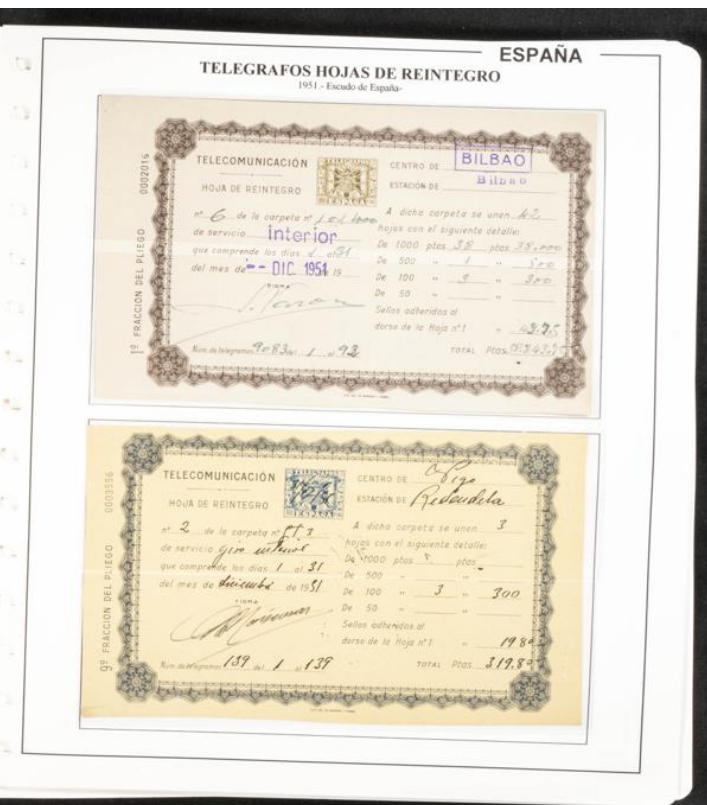 ESPAÑA
TELEGRAFOS HOJAS DE REINTEGRO
1951.- Escudo de España-
1º FRACCION DEL PLIEGO 0002016
TELECOMUNICACIÓN
HOJA DE REINTEGRO
TELEGRAFOS
ESPAÑA
CENTRO DE BILBAO
ESTACIÓN DE Bilbao
nº 6 de la carpeta nº
de servicio interior
que comprende los días 1 al 31
del mes de -- DIC. 1951 19
FIRMA
Núm. de telegramas 9083 del 1 al 93
A dicha carpeta se unen 42
hojas con el siguiente detalle:
De 1000 ptas 38 ptas 38,000
De 500 " 1 " 500
De 100 " 3 " 300
De 50 " "
Sellos adheridos al
dorso de la Hoja nº 1 " 43.75
TOTAL Ptas.
9º FRACCION DEL PLIEGO 0003556
TELECOMUNICACIÓN
HOJA DE REINTEGRO
ESPAÑA
CENTRO DE Vigo
ESTACIÓN DE Redondela
nº 2 de la carpeta nº 3
de servicio giro interior
que comprende los días 1 al 31
del mes de diciembre de 1951
FIRMA
Núm. de telegramas 139 del 1 al 139
A dicha carpeta se unen 3
hojas con el siguiente detalle:
De 1000 ptas ptas
De 500 " "
De 100 " 3 " 300
De 50 " "
Sellos adheridos al
dorso de la Hoja nº 1 " 19 80
TOTAL Ptas 319,80